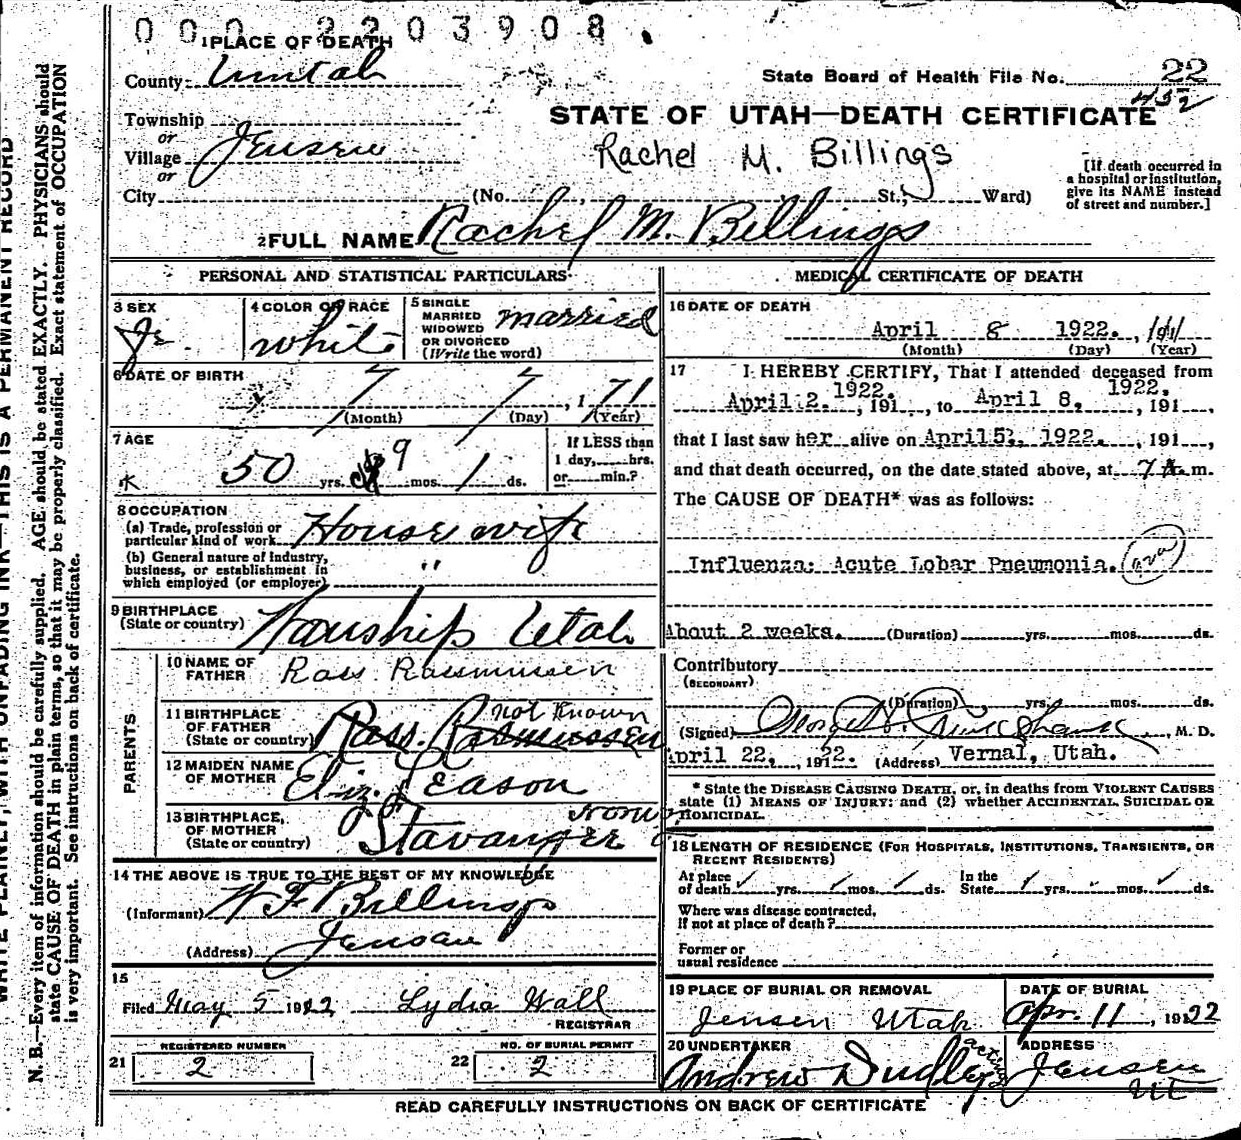 0 0 0 2 2 0 3 9 0 8
1 PLACE OF DEATH
County Uintah
State Board of Health File No. 22
452
STATE OF UTAH—DEATH CERTIFICATE
Township
or
Village Jensen
or
City
Rachel M. Billings
(No. , St.; Ward)
[If death occurred in
a hospital or institution,
give its NAME instead
of street and number.]
2 FULL NAME Rachel M. Billings
PERSONAL AND STATISTICAL PARTICULARS
3 SEX
Fe.
4 COLOR OR RACE
white
5 SINGLE
MARRIED
WIDOWED
OR DIVORCED
(Write the word)
married
6 DATE OF BIRTH
7 7, 1 71
(Month) (Day) (Year)
7 AGE
50 yrs. 9 mos. 1 ds.
If LESS than
1 day, hrs.
or min.?
8 OCCUPATION
(a) Trade, profession or
particular kind of work Housewife
(b) General nature of industry,
business, or establishment in
which employed (or employer) "
9 BIRTHPLACE
(State or country) Wanship Utah
PARENTS
10 NAME OF
FATHER Rass. Rasmussen
11 BIRTHPLACE
OF FATHER
(State or country) Rass. Rasmussen
not Known
12 MAIDEN NAME
OF MOTHER Eliz. Eason
13 BIRTHPLACE,
OF MOTHER
(State or country) Stavanger
14 THE ABOVE IS TRUE TO THE BEST OF MY KNOWLEDGE
(Informant) W F Billings
(Address) Jensen
15
Filed May 5 1922 Lydia Hall
REGISTRAR
21 REGISTERED NUMBER
2
22 NO. OF BURIAL PERMIT
2
MEDICAL CERTIFICATE OF DEATH
16 DATE OF DEATH
April 8 1922., 191
(Month) (Day) (Year)
17 I HEREBY CERTIFY, That I attended deceased from
April 2. 1922., 191 , to April 8, 1922, , 191 ,
that I last saw her alive on April 5, 1922. , 191 ,
and that death occurred, on the date stated above, at 7 A. m.
The CAUSE OF DEATH* was as follows:
Influenza: Acute Lobar Pneumonia.
About 2 weeks. (Duration) yrs. mos. ds.
Contributory
(SECONDARY)
(Duration) yrs. mos. ds.
(Signed) , M. D.
April 22, , 1912 2. (Address) Vernal, Utah.
* State the DISEASE CAUSING DEATH, or, in deaths from VIOLENT CAUSES
state (1) MEANS OF INJURY: and (2) whether ACCIDENTAL, SUICIDAL OR
HOMICIDAL.
18 LENGTH OF RESIDENCE (FOR HOSPITALS, INSTITUTIONS, TRANSIENTS, OR
RECENT RESIDENTS)
At place
of death yrs. mos. ds.
In the
State yrs. mos. ds.
Where was disease contracted,
if not at place of death?
Former or
usual residence
19 PLACE OF BURIAL OR REMOVAL
Jensen Utah
DATE OF BURIAL
Apr. 11, 1922
20 UNDERTAKER
Andrew Dudley acting
ADDRESS
Jensen
Ut
READ CAREFULLY INSTRUCTIONS ON BACK OF CERTIFICATE
WRITE PLAINLY, WITH UNFADING INK—THIS IS A PERMANENT RECORD
N. B.—Every item of information should be carefully supplied. AGE should be stated EXACTLY. PHYSICIANS should
state CAUSE OF DEATH in plain terms, so that it may be properly classified. Exact statement of OCCUPATION
is very important. See instructions on back of certificate.